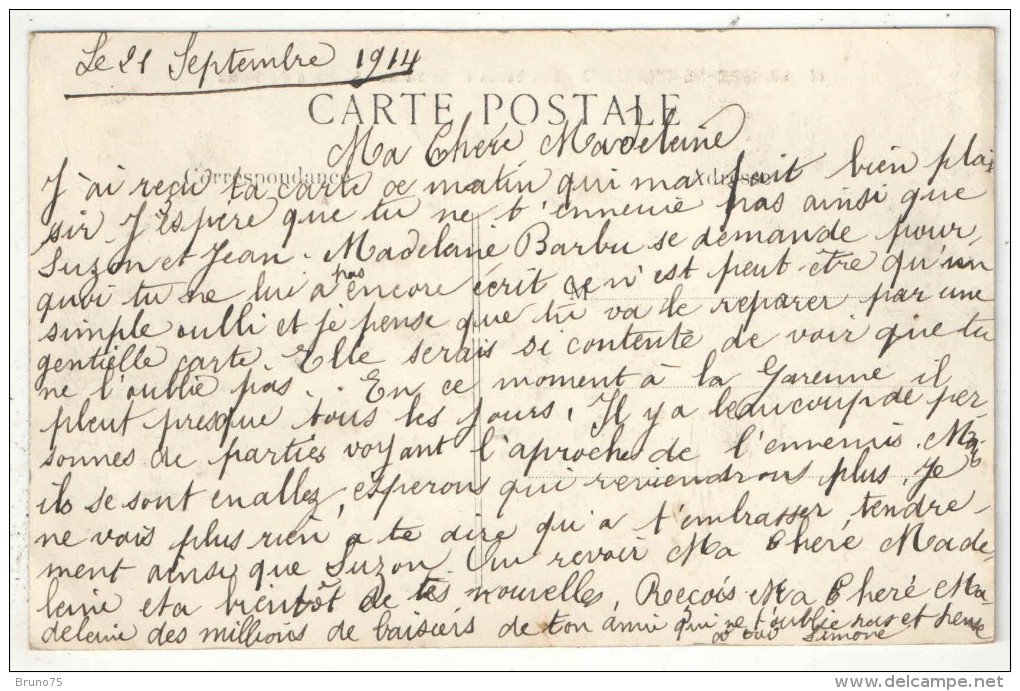 Le 21 Septembre 1914
CARTE POSTALE
Ma Cheré Madeleine
Correspondance
Adresse
J'ai reçu ta carte ce matin qui ma fait bien plai
sir. J'espere que tu ne t'ennuie pas ainsi que
Suzon et Jean. Madeleine Barbu se demande pour-
quoi tu ne lui a pas encore écrit ce n'est peut être qu'un
M
simple oulli et je pense que tu va le reparer par une
gentielle carte. Elle serais si contente de voir que tu
ne l'oublie pas. En ce moment à la Garenne il
pleut presque tous les jours. Il y a beaucoup de per-
sonnes de parties voyant l'aproche de l'ennemis. Mais
ils se sont en allez, esperons qui reviendrons plus. Je
ne vois plus rien a te dire qu'a t'embrasser tendre-
ment ainsi que Suzon. Au revoir Ma Cheré Made-
leine et a bientôt de tes nouvelles. Reçois Ma Cheré Ma-
deleine des millions de baisiers de ton amie qui ne t'oublie pas et pense
a toi Simone
Bruno75
www.delcampe.net